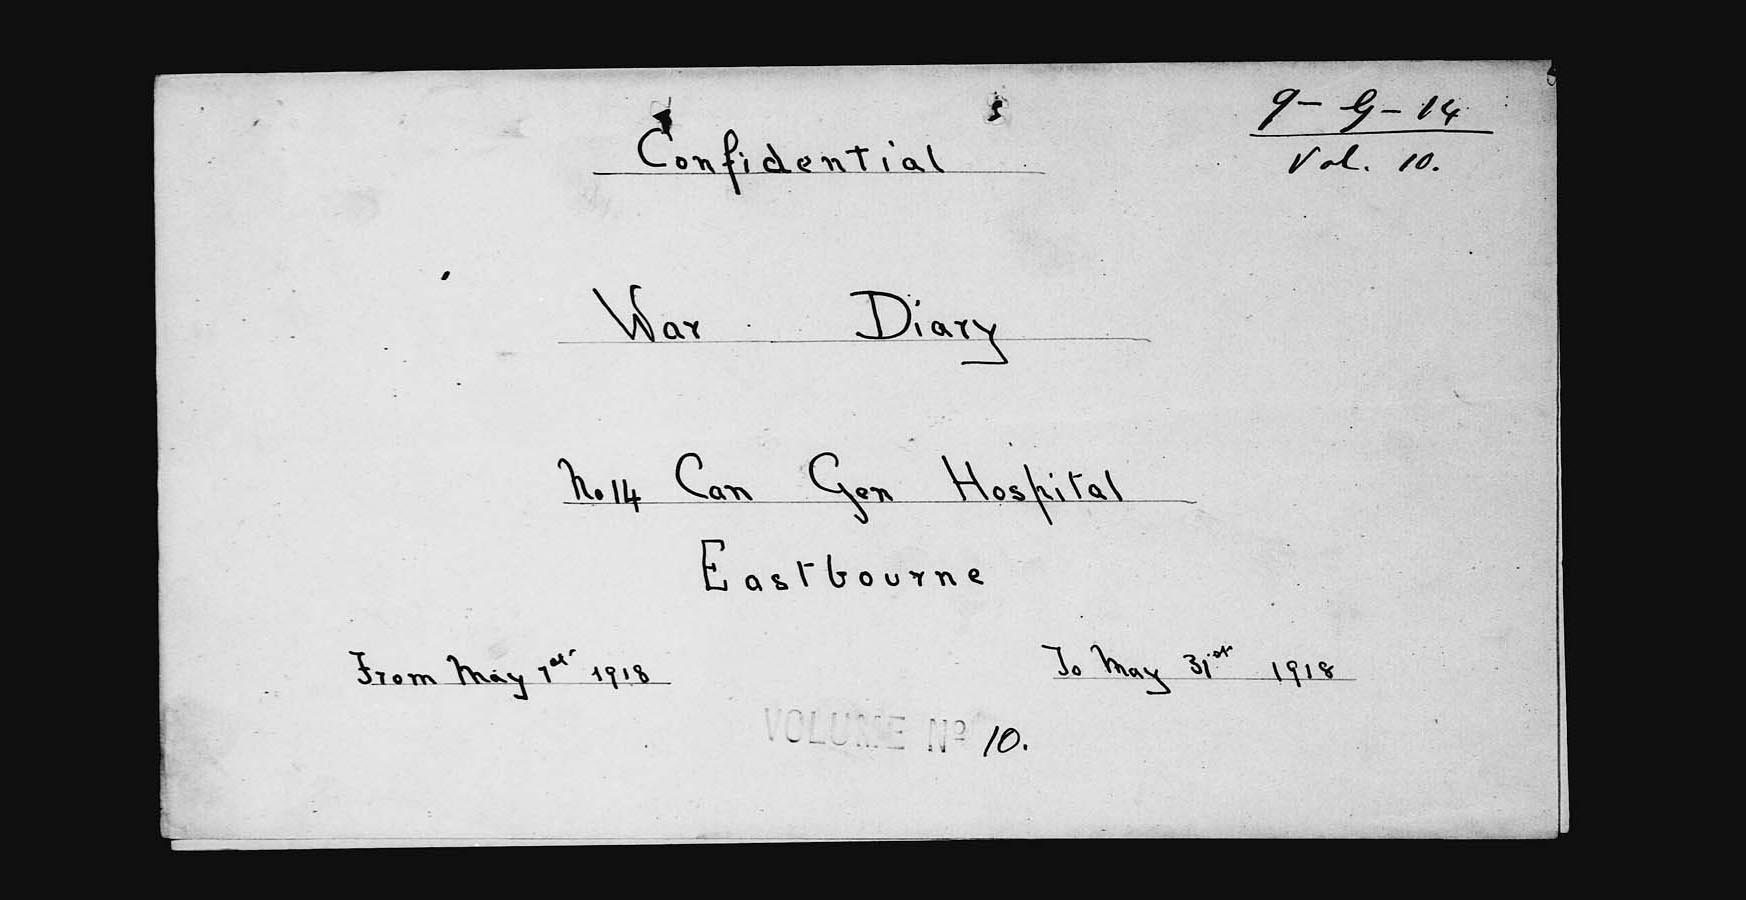 9-G-14
Vol. 10.
Confidential
War Diary
No 14 Can Gen Hospital
Eastbourne
From May 1st 1918 To May 31st 1918
VOLUME No 10.